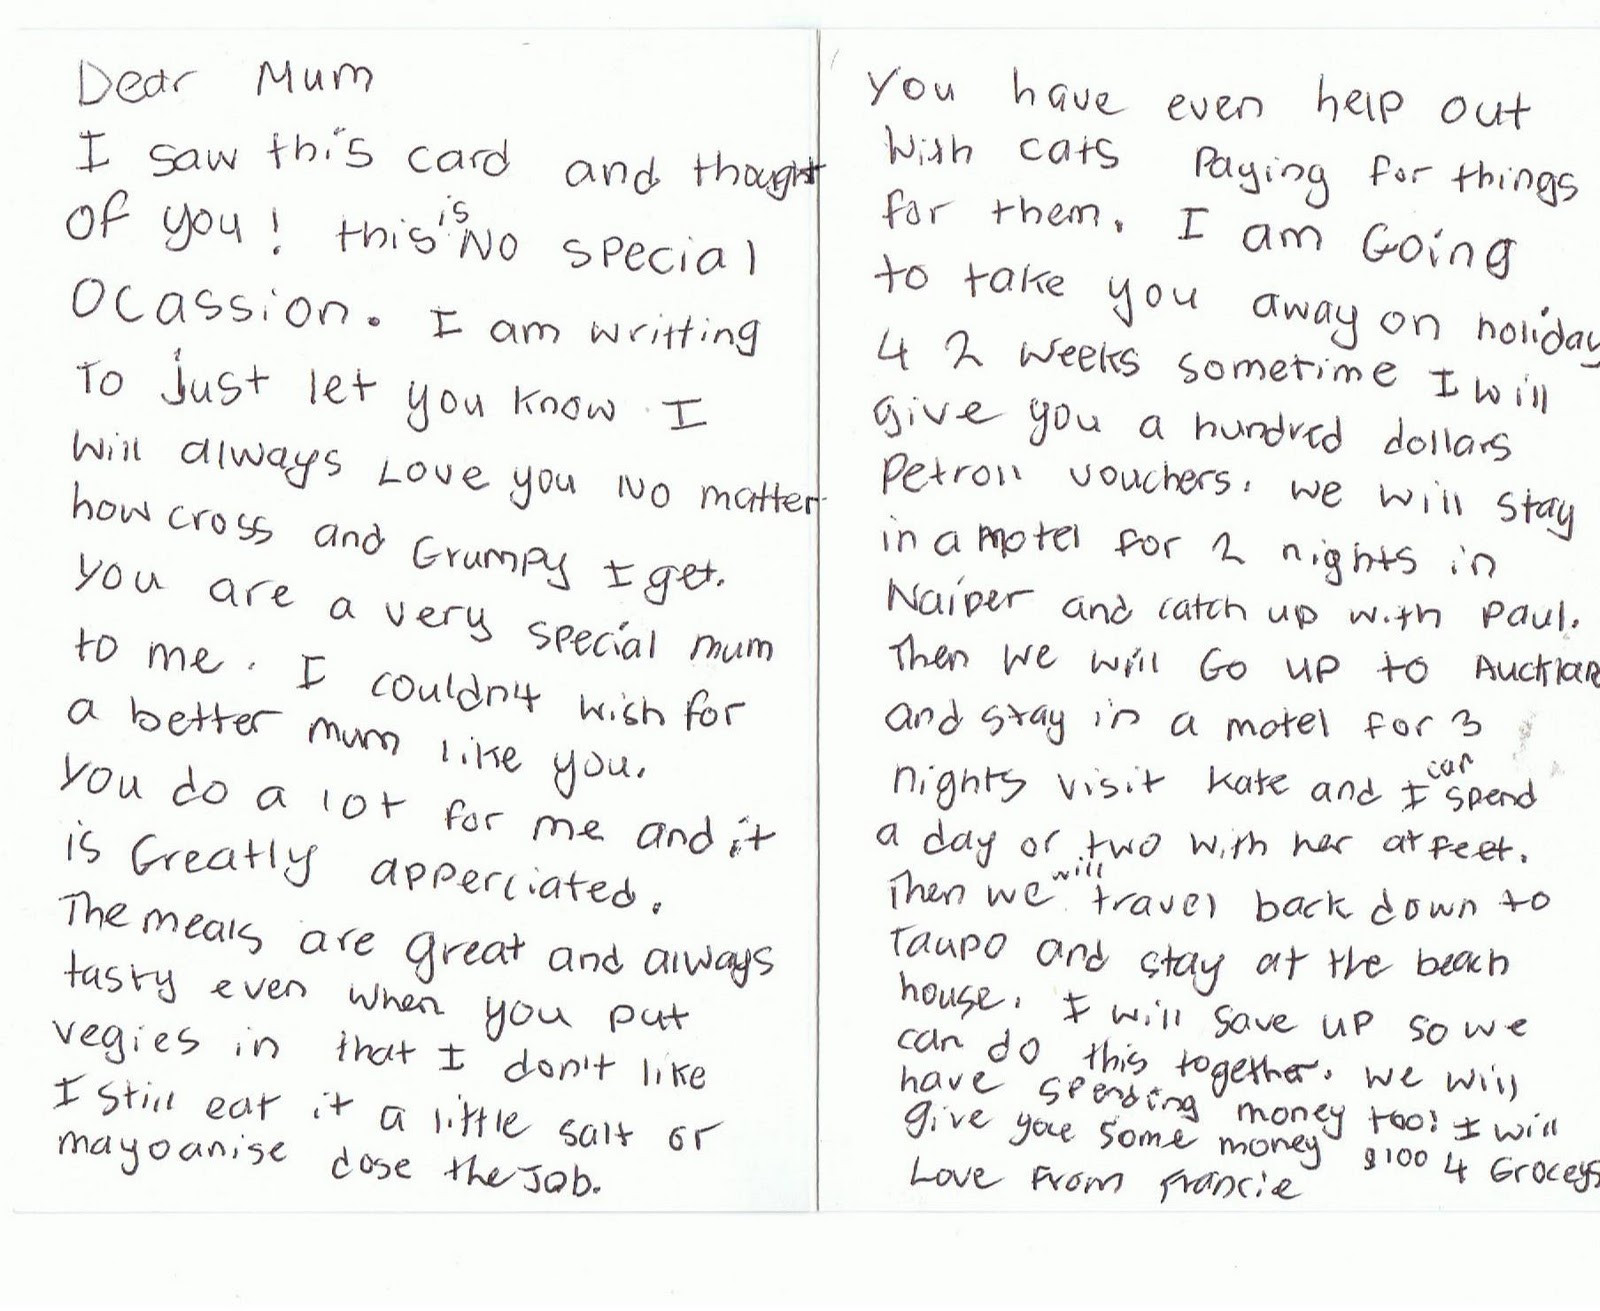 Dear Mum
I saw this card and thought
of you! this is No special
Ocassion. I am writting
To just let you know I
Will always Love you No matter
how cross and Grumpy I get.
You are a very special mum
to me. I couldn't wish for
a better mum like you.
You do a lot for me and it
is Greatly apperciated.
The meals are great and always
tasty even when you put
vegies in that I don't like
I still eat it a little salt or
mayoanise dose the Job.
You have even help out
With cats Paying for things
for them. I am Going
to take you away on holiday
4 2 weeks sometime I will
give you a hundred dollars
Petroll vouchers. we will stay
in a motel for 2 nights in
Naiper and catch up with Paul.
Then we will Go up to Aucklan
and stay in a motel for 3
nights visit Kate and I can spend
a day or two with her at feet.
Then we will travel back down to
Taupo and stay at the beach
house. I will save up so we
can do this together. we will
have spending money too! I will
give you some money $100 4 Groceys
Love From Francie